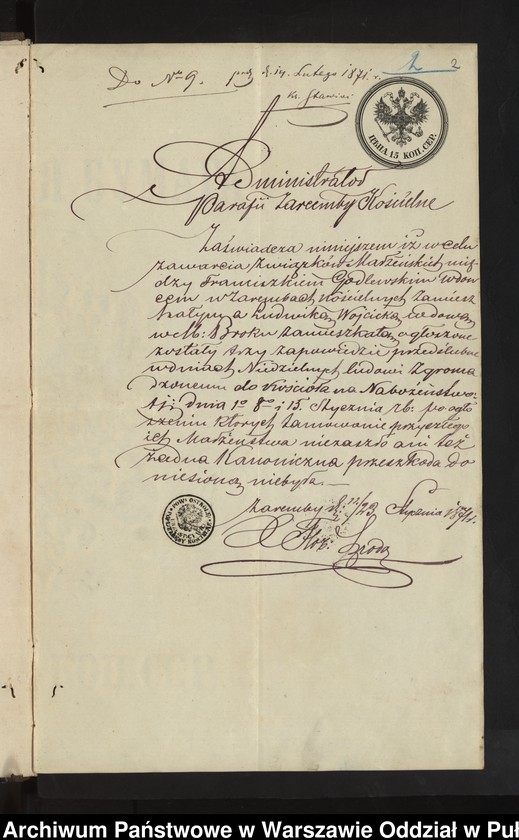 Do Nº 9. d. 14 Lutego 1871 r. 2 2
ЦѢНА 15 КОП. СЕР.
Administrator
Parafii Zaremby Kościelne
Zaświadcza niniejszem iż w celu
zawarcia Związków Małżeńskich mię-
dzy Franciszkiem Godlewskim wdow
cem w Zarembach Kościelnych zamiesz
kałym, a Ludwiką Wójcicką wdową
w M: Broku zamieszkałą, ogłoszone
zostały trzy zapowiedzie przedślubne
w dniach Niedzielnych ludowi zgroma
dzonemu do Kościoła na Nabożeństwo.
tj: dnia 1º 8º i 15. Stycznia rb. po ogło
szeniu których tamowanie przyszłego
ich Małżeństwa niezaszło ani też
żadna Kanoniczna przeszkoda do
niesioną niebyła.—
Zaremby d. Stycznia 1871 r.
X
Archiwum Państwowe w Warszawie Oddział w Puł